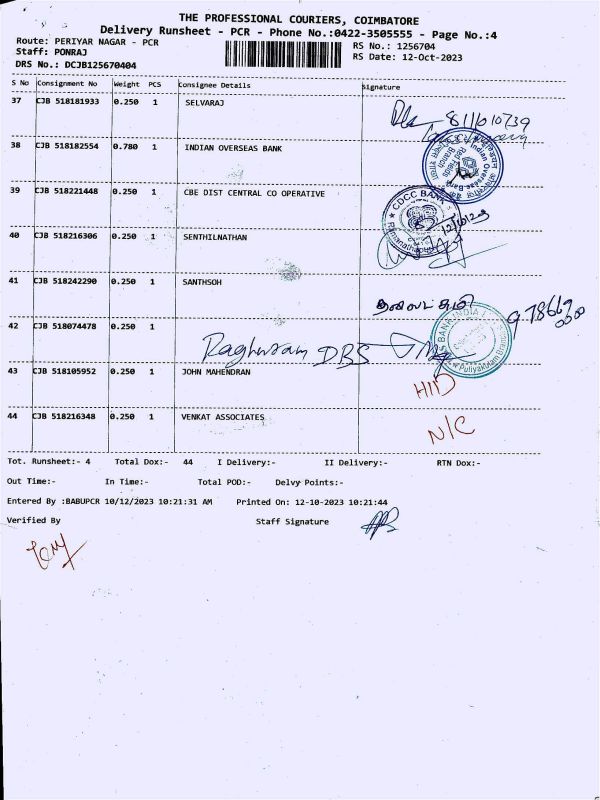 THE PROFESSIONAL COURIERS, COIMBATORE
Delivery Runsheet - PCR - Phone No.:0422-3505555 - Page No.:4
Route: PERIYAR NAGAR - PCR
RS No.: 1256704
Staff: PONRAJ
RS Date: 12-Oct-2023
DRS No.: DCJB125670404
S No Consignment No Weight PCS Consignee Details Signature
37 CJB 518181933 0.250 1 SELVARAJ
38 CJB 518182554 0.780 1 INDIAN OVERSEAS BANK
Indian Overseas Bank
Red Fields Branch
39 CJB 518221448 0.250 1 CBE DIST CENTRAL CO OPERATIVE
CDCC BANK
12/10/23
40 CJB 518216306 0.250 1 SENTHILNATHAN
41 CJB 518242290 0.250 1 SANTHSOH
42 CJB 518074478 0.250 1
Raghuram DBS
BANK INDIA
Puliyakulam Branch
43 CJB 518105952 0.250 1 JOHN MAHENDRAN
44 CJB 518216348 0.250 1 VENKAT ASSOCIATES
N/C
Tot. Runsheet:- 4 Total Dox:- 44 I Delivery:- II Delivery:- RTN Dox:-
Out Time:- In Time:- Total POD:- Delvy Points:-
Entered By :BABUPCR 10/12/2023 10:21:31 AM Printed On: 12-10-2023 10:21:44
Verified By Staff Signature